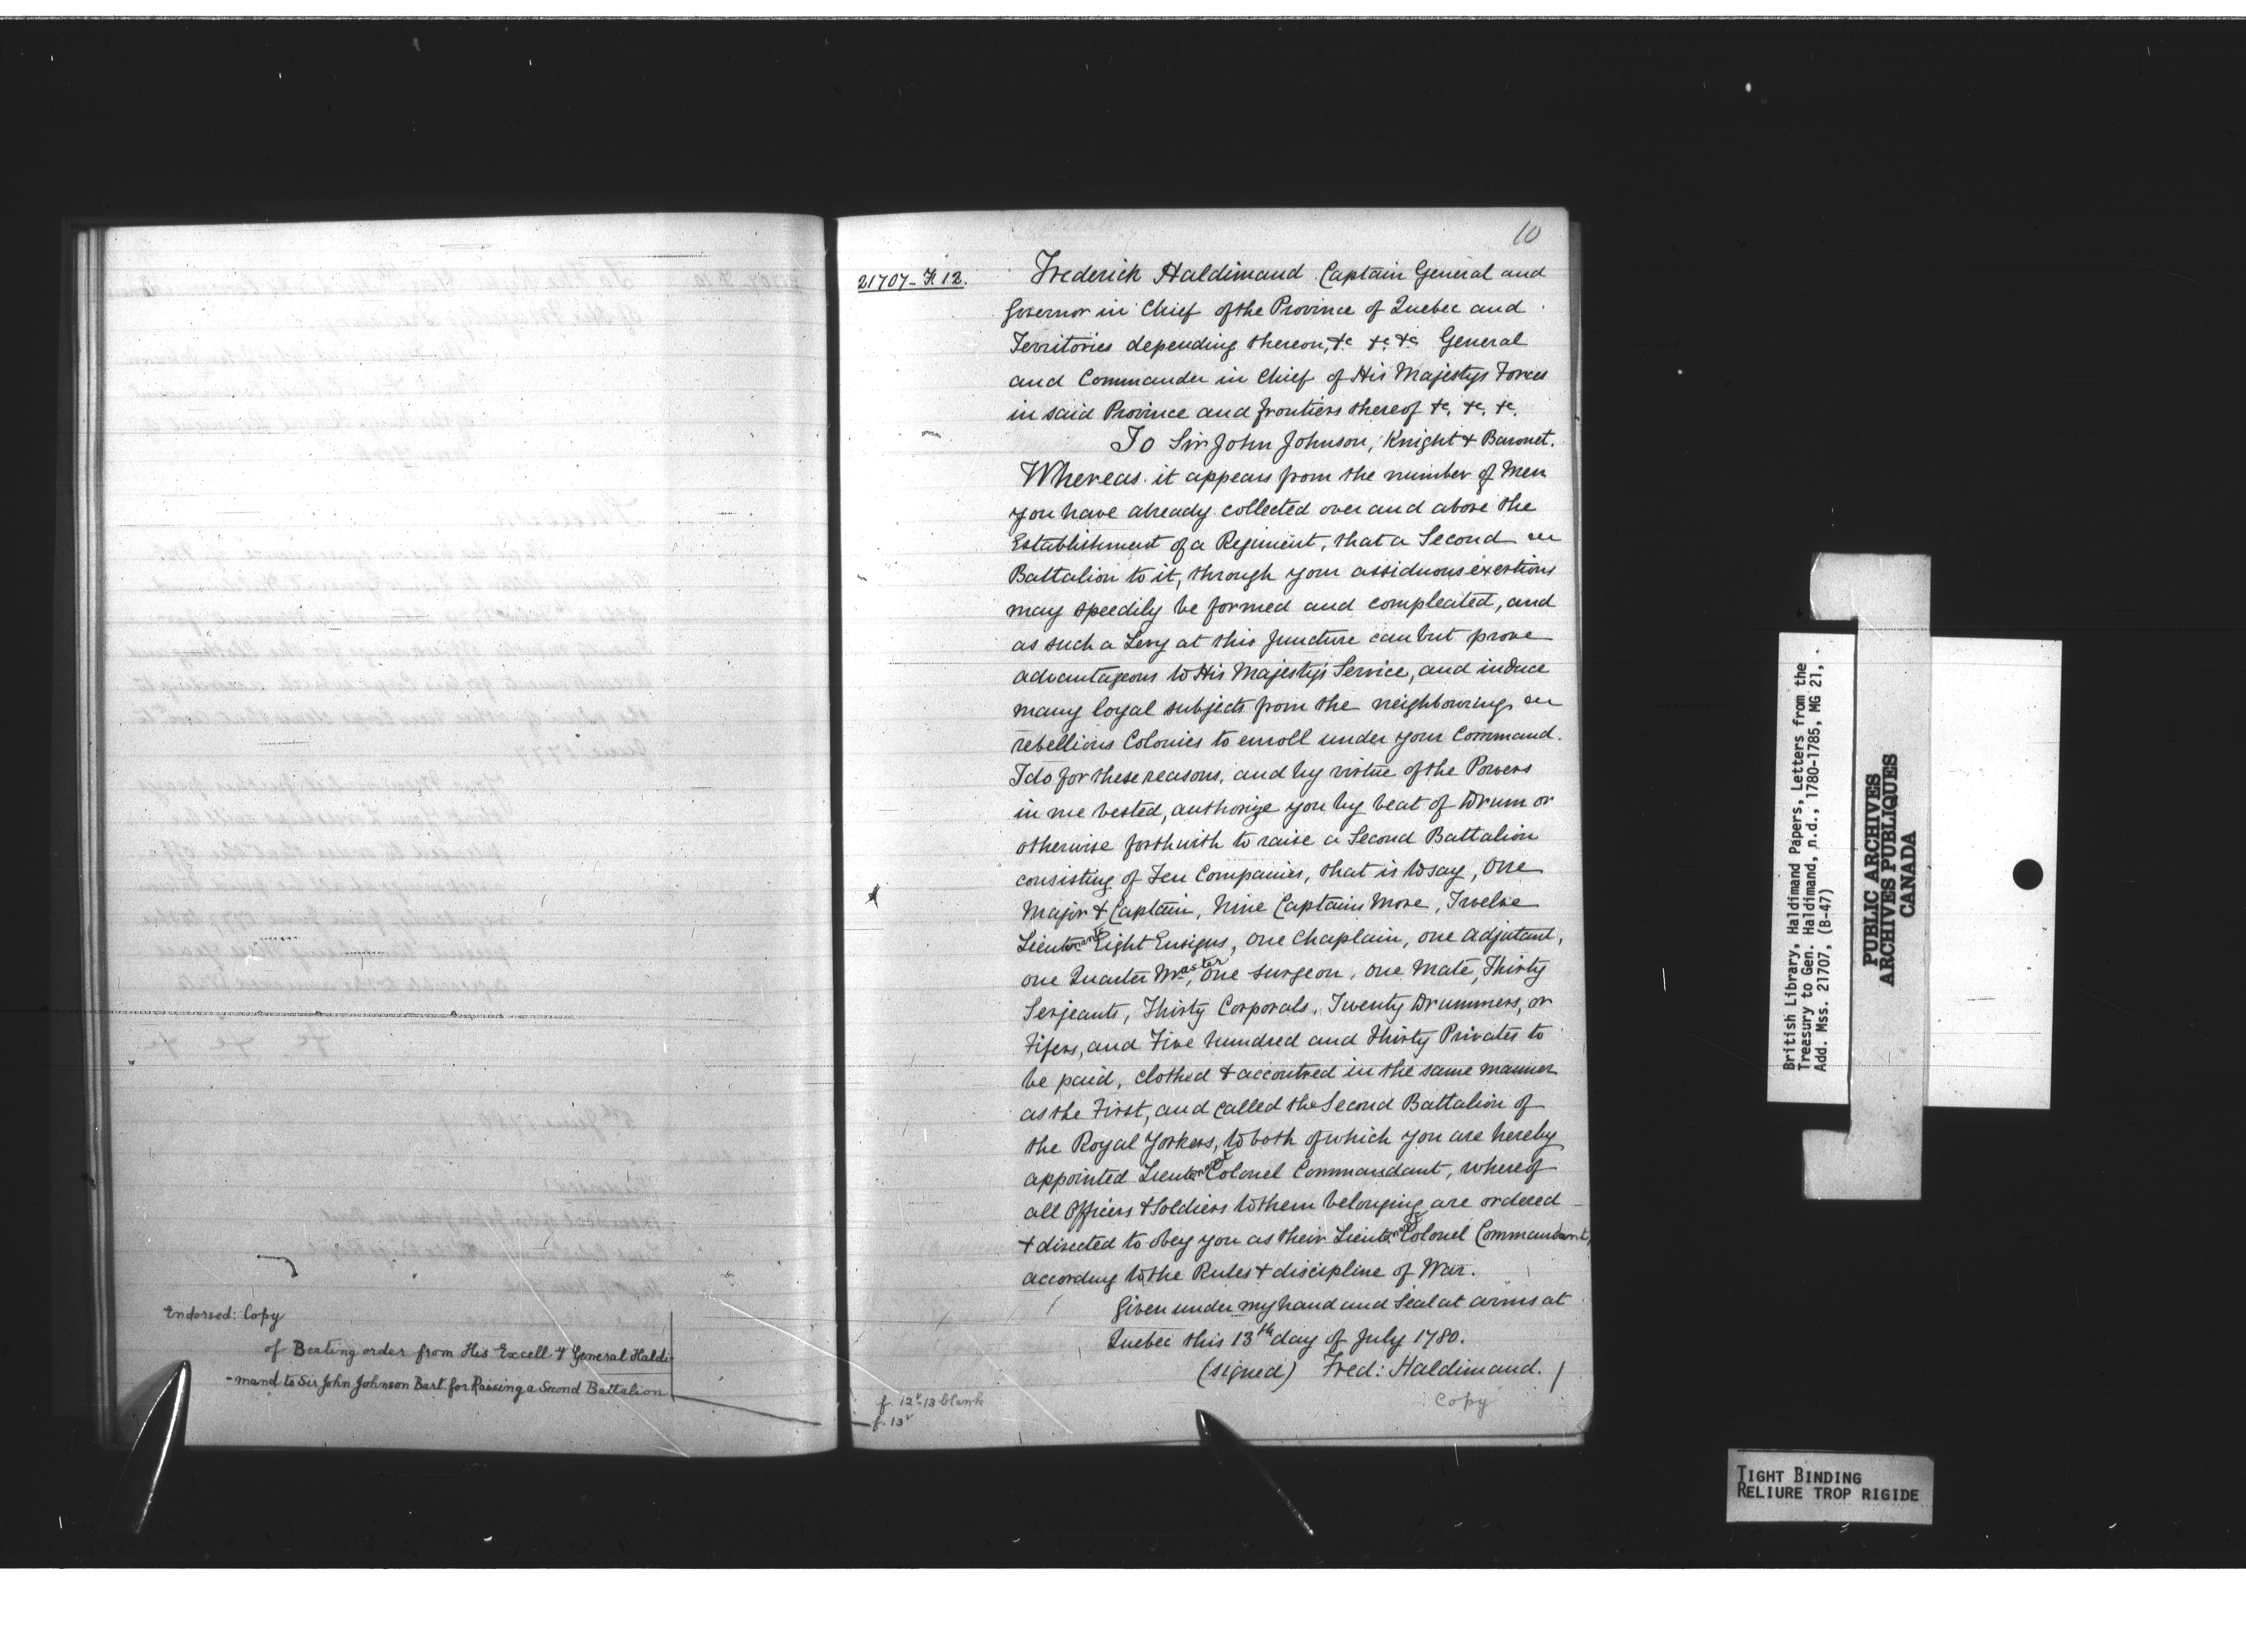 Endorsed: Copy
of Beating order from His Excell.y General Haldi-
-mand to Sir John Johnson Bart. for Raising a Second Battalion
10
21707-F.12.
Frederick Haldimand Captain General and
Governor in Chief of the Province of Quebec and
Territories depending thereon, &c &c &c General
and Commander in Chief of His Majestys Forces
in said Province and frontiers thereof &c, &c, &c.
To Sir John Johnson, Knight & Baronet.
Whereas it appears from the number of Men
you have already collected over and above the
Establishment of a Regiment, that a Second
Battalion to it, through your assiduous exertions
may speedily be formed and compleated, and
as such a Levy at this juncture can but prove
advantageous to His Majesty's Service, and induce
many loyal subjects from the neighbouring
rebellious Colonies to enroll under your Command.
I do for these reasons, and by virtue of the Powers
in me vested, authorize you by beat of Drum or
otherwise forthwith to raise a Second Battalion
consisting of Ten Companies, that is to say, One
Major & Captain, Nine Captains More, Twelve
Lieutenants Eight Ensigns, One Chaplain, one Adjutant,
one Quarter Master, One Surgeon, One Mate, Thirty
Serjeants, Thirty Corporals, Twenty Drummers, or
Fifers, and Five hundred and thirty Privates to
be paid, clothed & accoutred in the same manner
as the First, and called the Second Battalion of
the Royal Yorkers, to both of which you are hereby
appointed Lieutenant Colonel Commandant, whereof
all Officers & Soldiers to them belonging are ordered
& directed to obey you as their Lieutenant Colonel Commandant,
according to the Rules & discipline of War.
Given under my hand and Seal at arms at
Quebec this 13th day of July 1780.
(signed) Fred: Haldimand.
Copy
f. 12v-13 blank
f. 13v
British Library, Haldimand Papers, Letters from the
Treasury to Gen. Haldimand, n.d., 1780-1785, MG 21,
Add. Mss. 21707, (B-47)
PUBLIC ARCHIVES
ARCHIVES PUBLIQUES
CANADA
TIGHT BINDING
RELIURE TROP RIGIDE